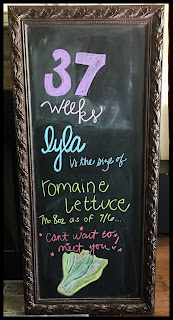 37
weeks
lyla
is the size of
romaine
lettuce
7lb 8oz as of 7/6...
Can't wait to
meet you